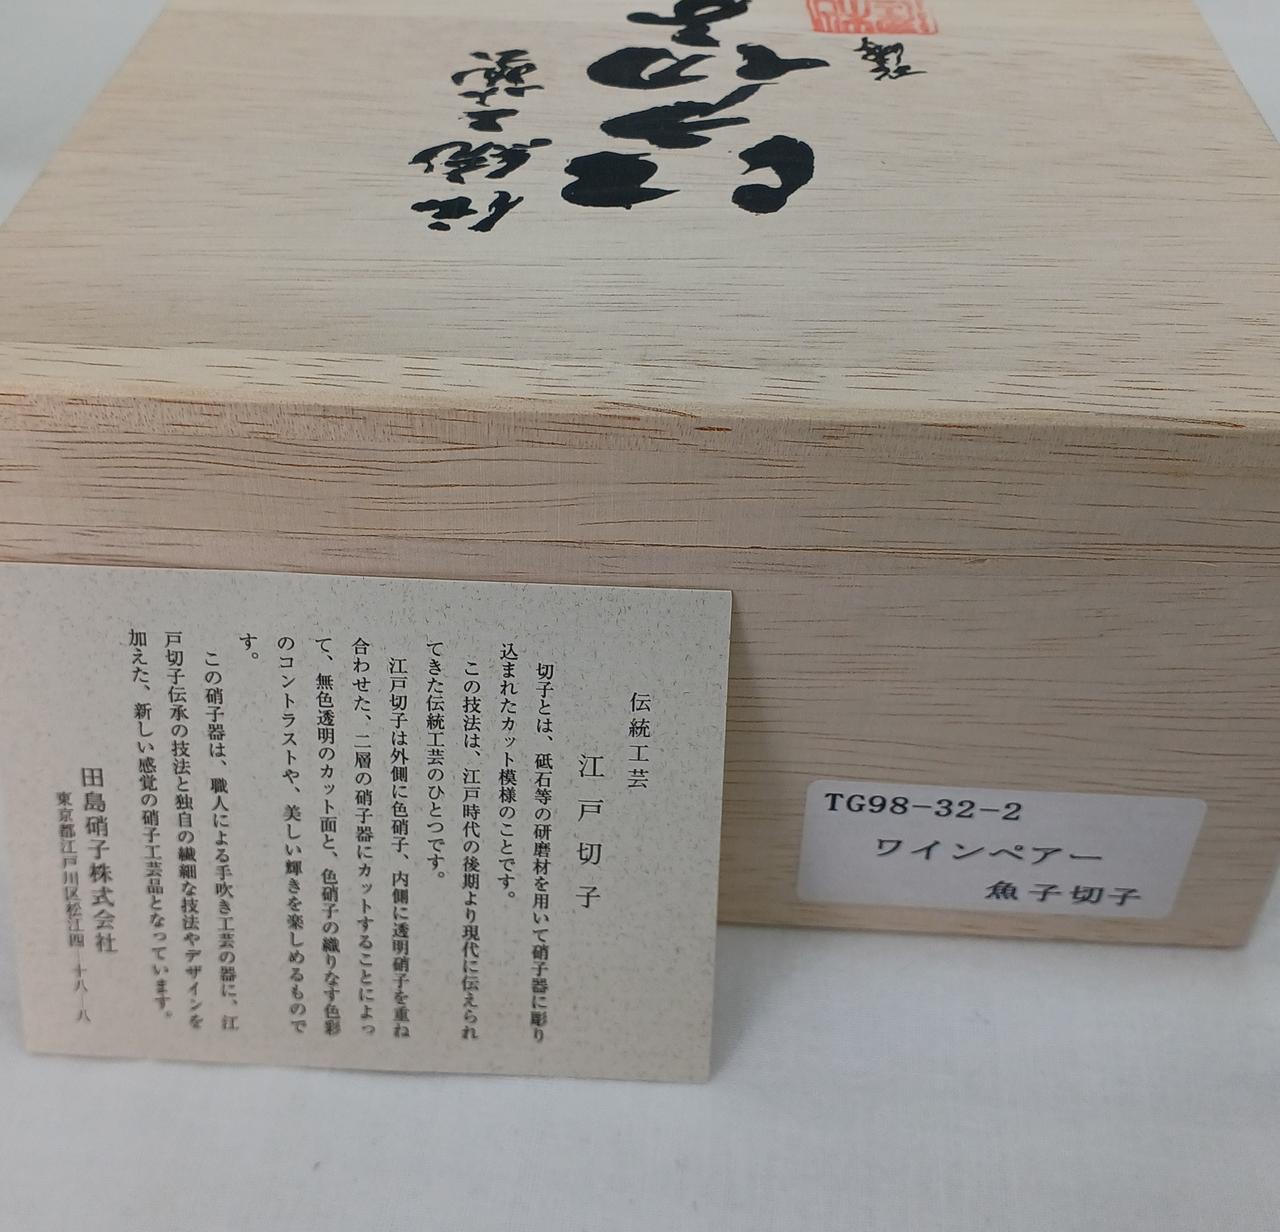 伝統工芸
江戸切子
切子とは、砥石等の研磨材を用いて硝子器に彫り
込まれたカット模様のことです。
この技法は、江戸時代の後期より現代に伝えられ
てきた伝統工芸のひとつです。
江戸切子は外側に色硝子、内側に透明硝子を重ね
合わせた、二層の硝子器にカットすることによっ
て、無色透明のカット面と、色硝子の織りなす色彩
のコントラストや、美しい輝きを楽しめるもので
す。
この硝子器は、職人による手吹き工芸の器に、江
戸切子伝承の技法と独自の繊細な技法やデザインを
加えた、新しい感覚の硝子工芸品となっています。
田島硝子株式会社
東京都江戸川区松江四―十八―八
TG98-32-2
ワインペアー
魚子切子